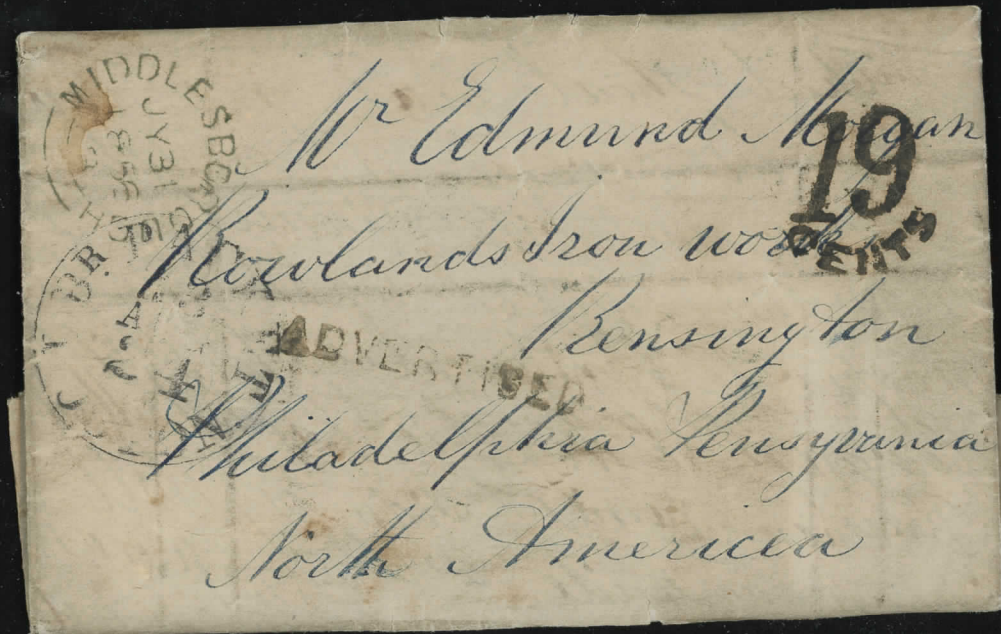 MIDDLESBRO
JY 31
Mr Edmund Morgan
19
CENTS
Rowlands Iron works
Kensington
ADVERTISED
Philadelphia Pensyvania
North Americca